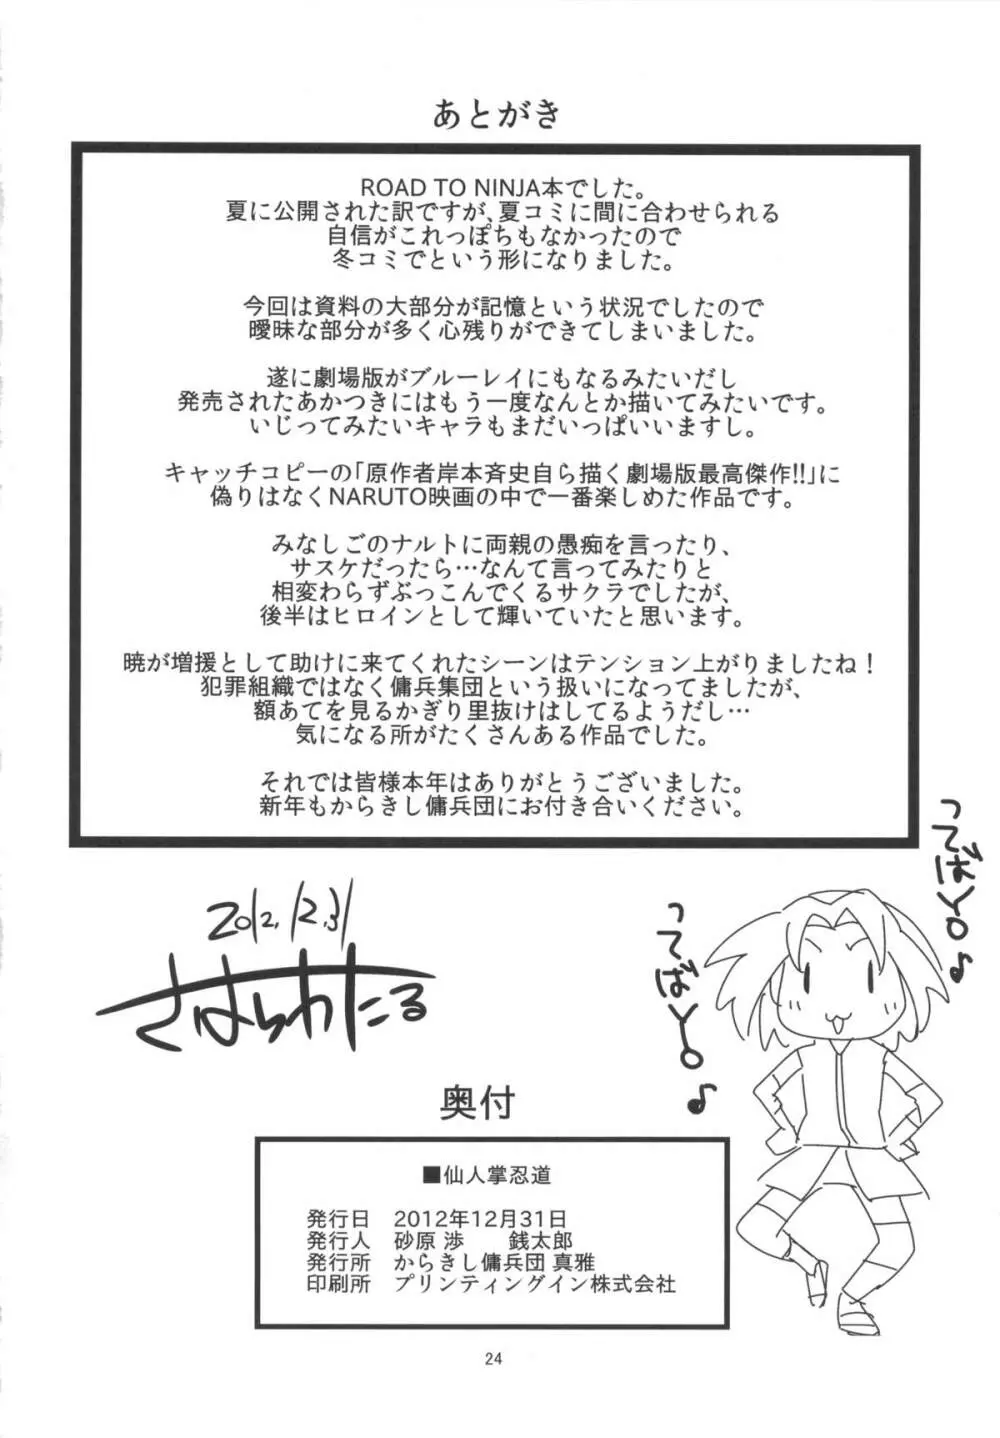 あとがき
ROAD TO NINJA本でした。
夏に公開された訳ですが、夏コミに間に合わせられる
自信がこれっぽちもなかったので
冬コミでという形になりました。
今回は資料の大部分が記憶という状況でしたので
曖昧な部分が多く心残りができてしまいました。
遂に劇場版がブルーレイにもなるみたいだし
発売されたあかつきにはもう一度なんとか描いてみたいです。
いじってみたいキャラもまだいっぱいいますし。
キャッチコピーの「原作者岸本斉史自ら描く劇場版最高傑作!!」に
偽りはなくNARUTO映画の中で一番楽しめた作品です。
みなしごのナルトに両親の愚痴を言ったり、
サスケだったら…なんて言ってみたりと
相変わらずぶっこんでくるサクラでしたが、
後半はヒロインとして輝いていたと思います。
暁が増援として助けに来てくれたシーンはテンション上がりましたね！
犯罪組織ではなく傭兵集団という扱いになってましたが、
額あてを見るかぎり里抜けはしてるようだし…
気になる所がたくさんある作品でした。
それでは皆様本年はありがとうございました。
新年もからきし傭兵団にお付き合いください。
2012.12.31
さはらわたる
ってばYO♪
ってばYO♪
奥付
■仙人掌忍道
発行日 2012年12月31日
発行人 砂原 渉 銭太郎
発行所 からきし傭兵団 真雅
印刷所 プリンティングイン株式会社
24